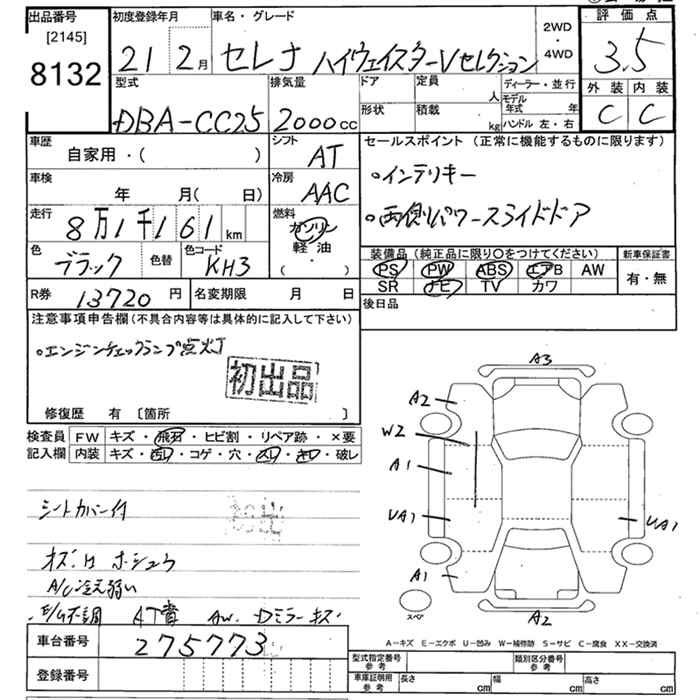 出品番号
[2145]
8132
初度登録年月
21 2月
車名・グレード
セレナ ハイウェイスターVセレクション
2WD
・
4WD
評価点
3.5
外装 内装
C C
型式
DBA-CC25
排気量
2000cc
ドア
定員
人
形状
積載
kg
ディーラー・並行
モデル
年式 年
ハンドル 左・右
車歴
自家用・( )
シフト
AT
車検
年 月( 日)
冷房
AAC
走行
8万1千161km
燃料
ガソリン
軽油
( ・ )
色
ブラック
色替
色コード
KH3
R券
13720円
名変期限 月 日
セールスポイント (正常に機能するものに限ります)
。インテリキー
。両側パワースライドドア
装備品 (純正品に限り〇をつけてください)
新車保証書
PS PW ABS エアB AW
SR ナビ TV カワ
有・無
後日品
注意事項申告欄(不具合内容等は具体的に記入して下さい)
。エンジンチェックランプ点灯
初出品
修復歴 有 〔箇所 〕
検査員
記入欄
FW キズ・飛石・ヒビ割・リペア跡・×要
内装 キズ・西レ・コゲ・穴・スレ・キレ・破レ
シートカバー付
オズ口 ホシュウ
A/C冷え弱い
E/G不調 AT賁 AW. Dミラーキズ
車台番号
275773
登録番号
A3
A2
W2
A1
UA1
UA1
A1
スペア
A2
A-キズ E-エクボ U-凹み W-補修跡 S-サビ C-腐食 XX-交換済
型式指定番号
参考
類別区分番号
参考
車庫証明用
参考
長さ cm
幅 cm
高さ cm